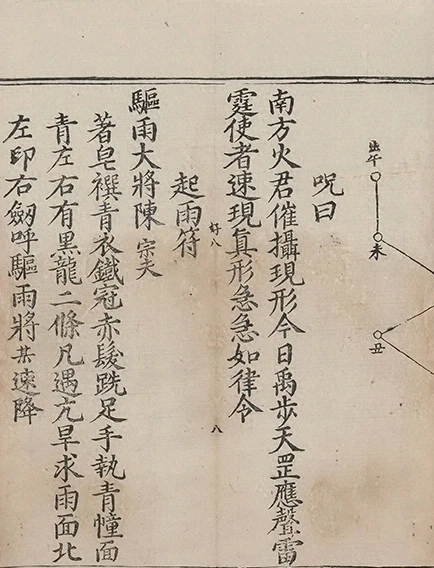 出午
未
丑
呪曰
南方火君催攝現形今日禹步天罡應聲雷
霆使者速現真形急急如律令
八
起雨符
驅雨大將陳宗夫
著皂襈青衣鐵冠赤髮跣足手執青幢面
青左右有黑龍二條凡遇亢旱求雨面北
左印右劒呼驅雨將共速降